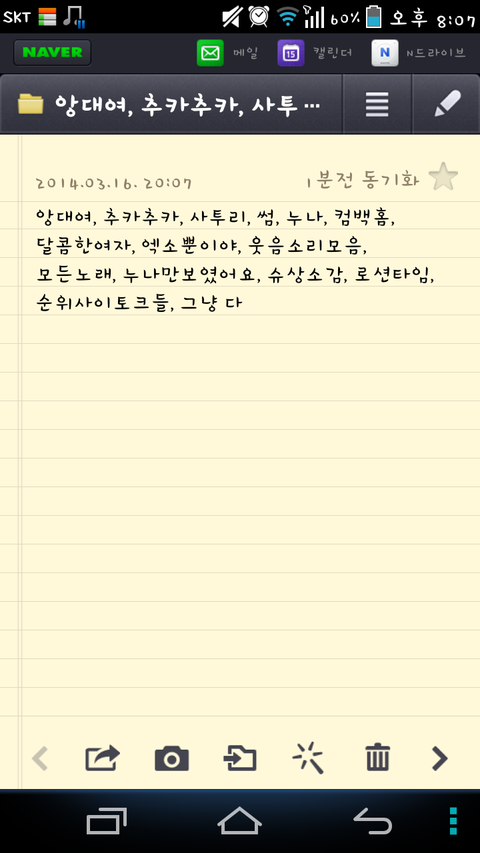 SKT 60% 오후 8:07
NAVER 메일 캘린더 N드라이브
앙대여, 추카추카, 사투…
2014.03.16. 20:07 1분전 동기화
앙대여, 추카추카, 사투리, 썸, 누나, 컴백홈,
달콤한여자, 엑소뿐이야, 웃음소리모음,
모든노래, 누나만보였어요, 슈상소감, 로션타임,
순위사이토크들, 그냥 다